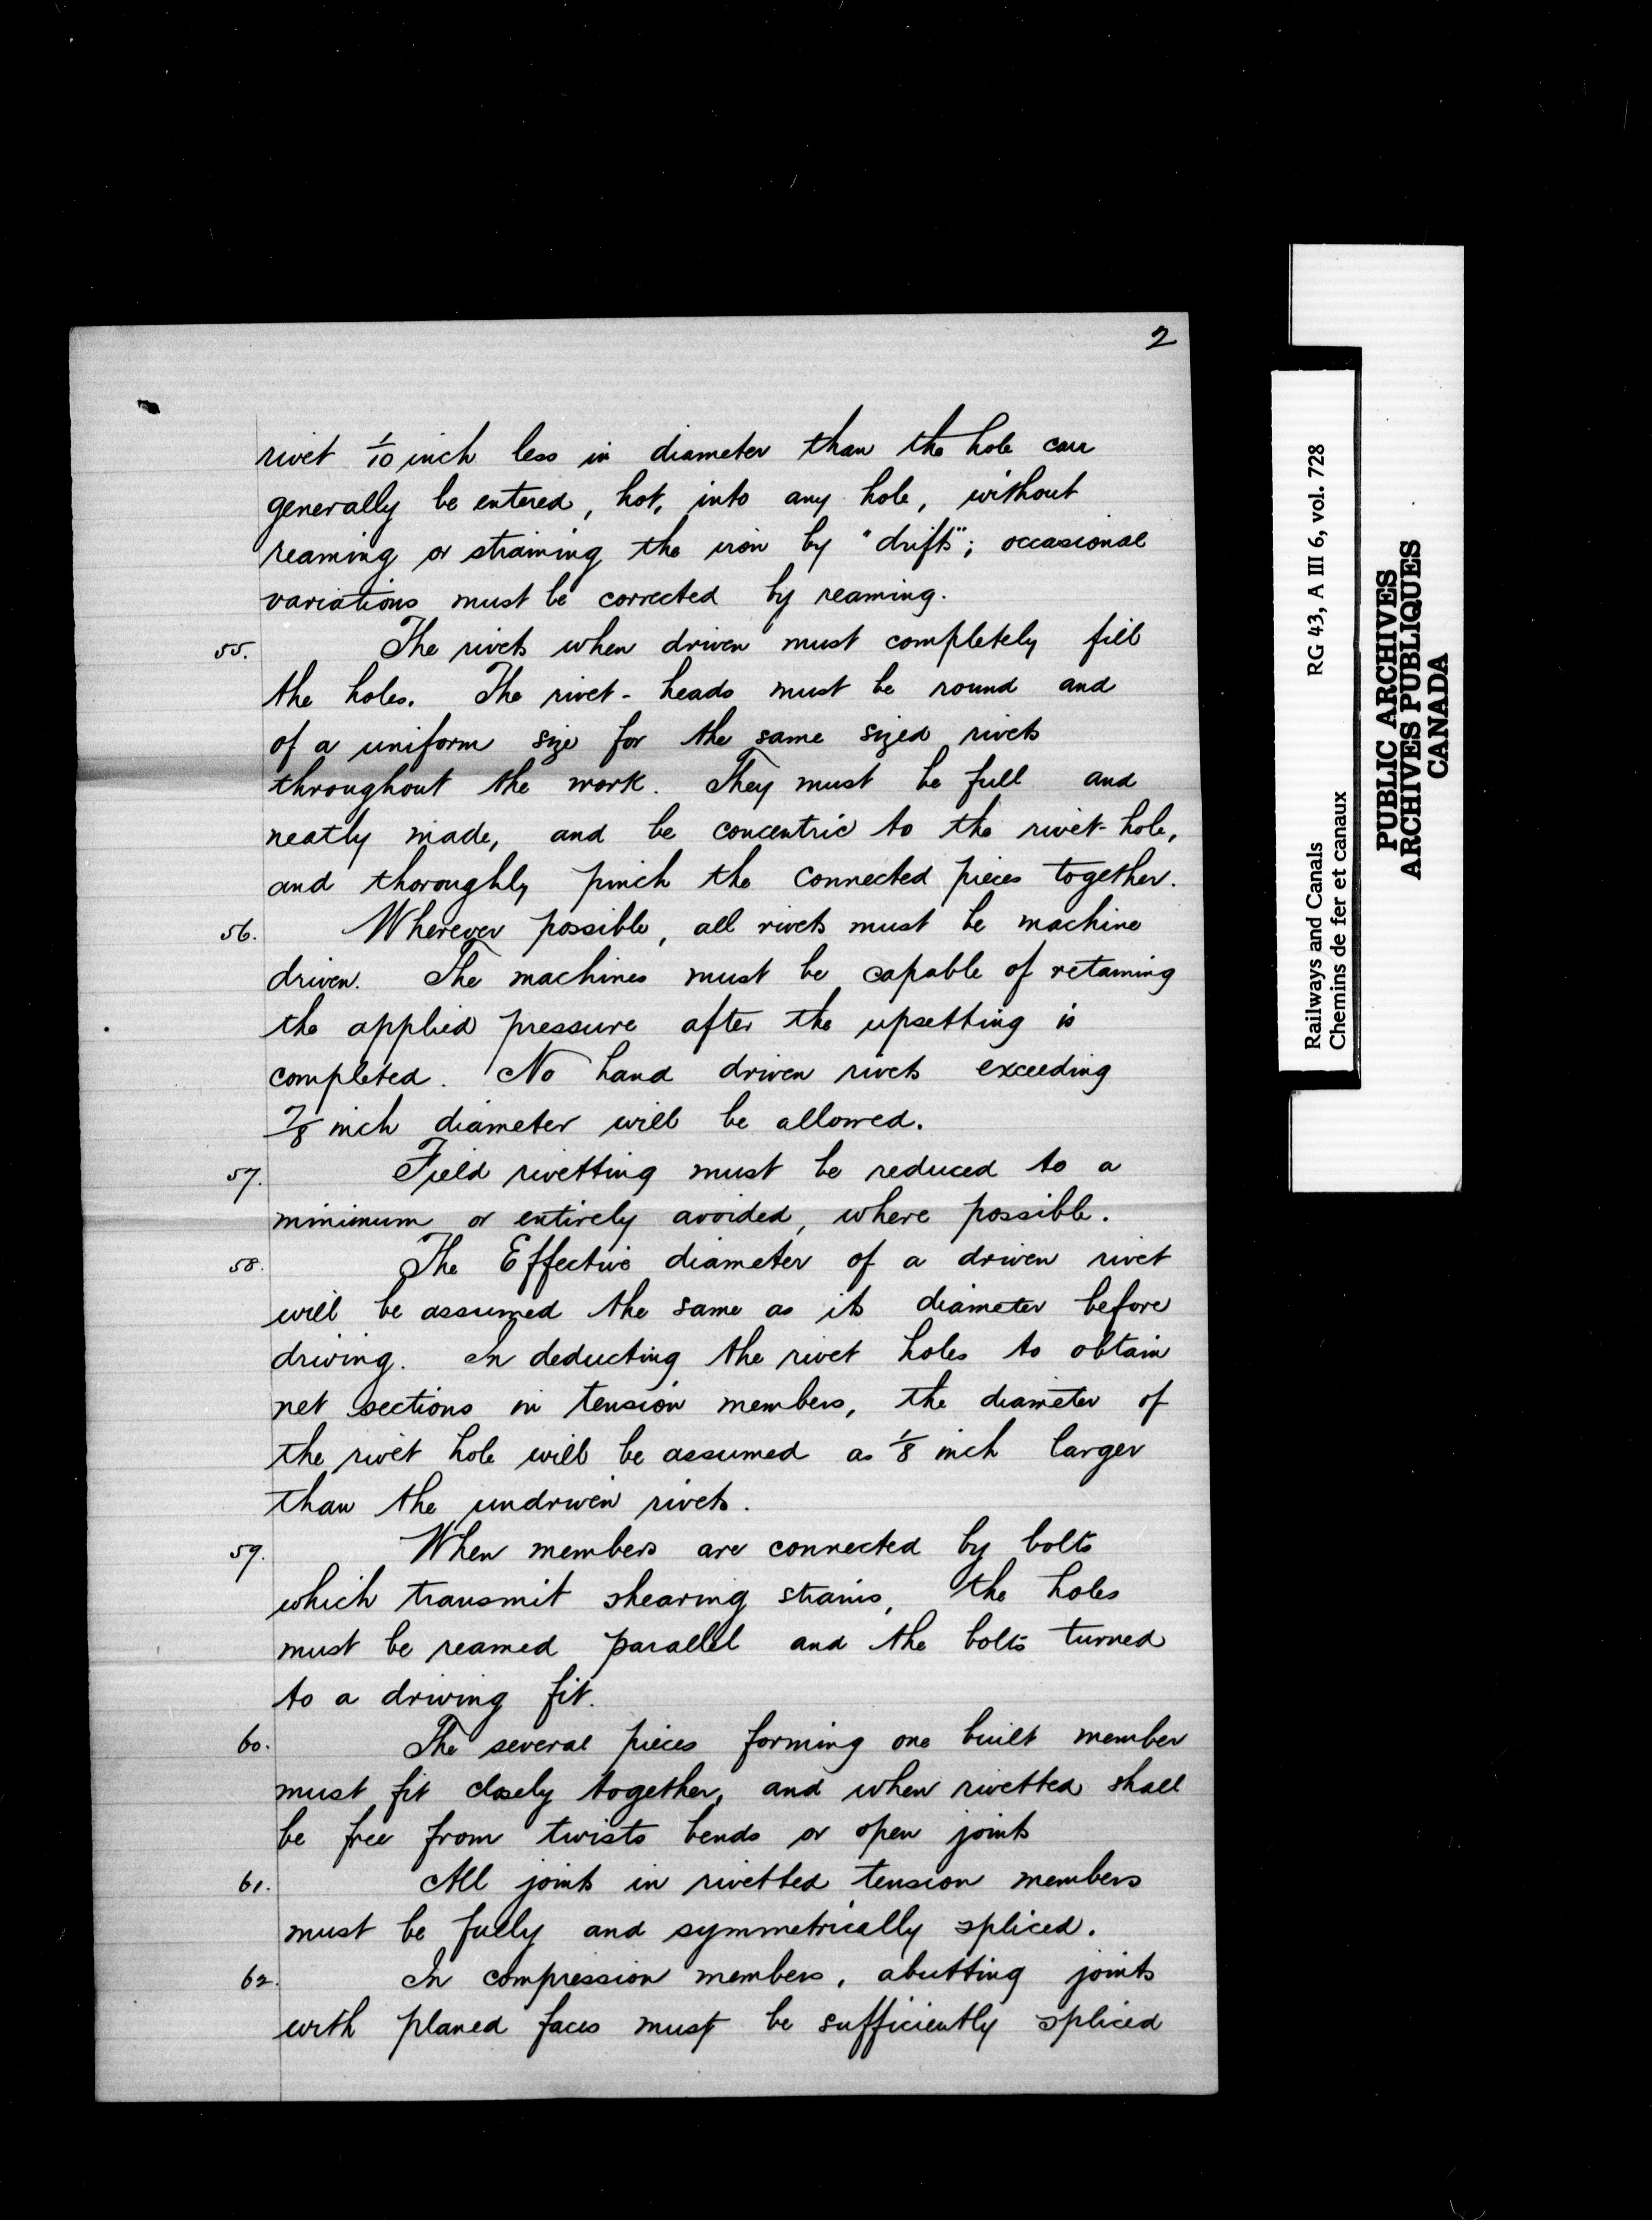 2
rivet 1/10 inch less in diameter than the hole can
generally be entered, hot, into any hole, without
reaming or straining the iron by "drifts"; occasional
variations must be corrected by reaming.
55. The rivets when driven must completely fill
the holes. The rivet-heads must be round and
of a uniform size for the same sized rivets
throughout the work. They must be full and
neatly made, and be concentric to the rivet-hole,
and thoroughly pinch the connected pieces together.
56. Wherever possible, all rivets must be machine
driven. The machines must be capable of retaining
the applied pressure after the upsetting is
completed. No hand driven rivets exceeding
7/8 inch diameter will be allowed.
57. Field rivetting must be reduced to a
minimum or entirely avoided, where possible.
58. The Effective diameter of a driven rivet
will be assumed the same as its diameter before
driving. In deducting the rivet holes to obtain
net sections in tension members, the diameter of
the rivet hole will be assumed as 1/8 inch larger
than the undriven rivets.
59. When members are connected by bolts
which transmit shearing strains, the holes
must be reamed parallel and the bolts turned
to a driving fit.
60. The several pieces forming one built member
must fit closely together, and when rivetted shall
be free from twists bends or open joints
61. All joints in rivetted tension members
must be fully and symmetrically spliced.
62. In compression members, abutting joints
with planed faces must be sufficiently spliced
Railways and Canals RG 43, A III 6, vol. 728
Chemins de fer et canaux
PUBLIC ARCHIVES
ARCHIVES PUBLIQUES
CANADA